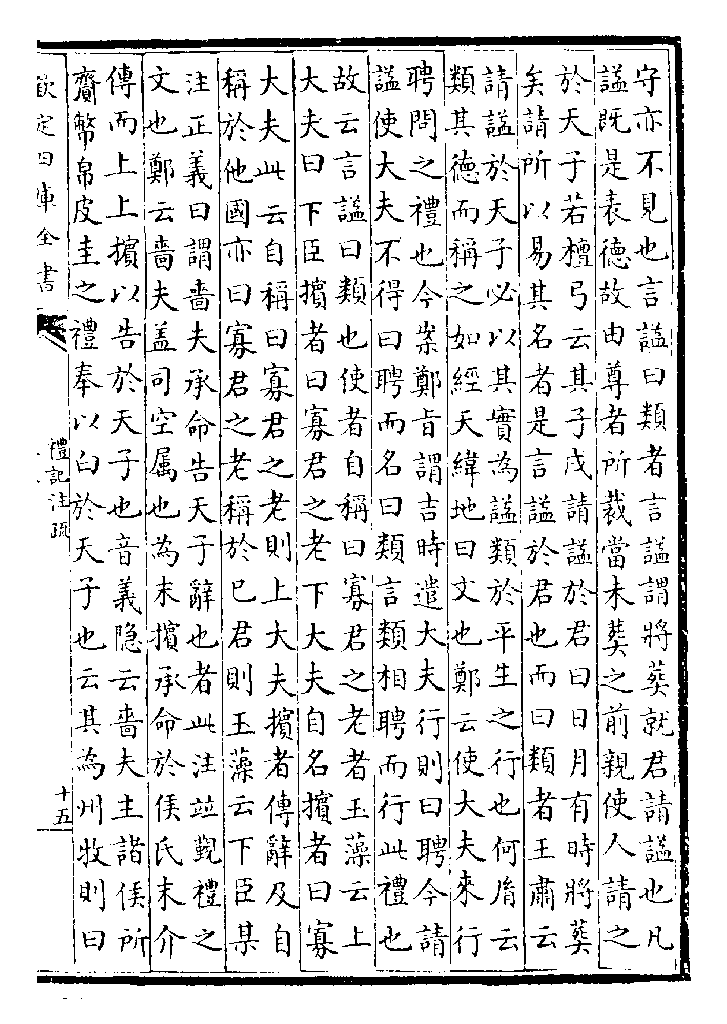 守亦不見也言謚曰類者言謚謂將葬就君請謚也凡
謚既是表德故由尊者所裁當未葬之前親使人請之
於天子若檀弓云其子戍請謚於君曰日月有時將葬
矣請所以易其名者是言謚於君也而曰類者王肅云
請謚於天子必以其實為謚類於平生之行也何㣧云
類其德而稱之如經天緯地曰文也鄭云使大夫來行
聘問之禮也今案鄭旨謂吉時遣大夫行則曰聘今請
謚使大夫不得曰聘而名曰類言類相聘而行此禮也
故云言謚曰類也使者自稱曰寡君之老者玉藻云上
大夫曰下臣擯者曰寡君之老下大夫自名擯者曰寡
大夫此云自稱曰寡君之老則上大夫擯者傳辭及自
稱於他國亦曰寡君之老稱於已君則玉藻云下臣某
注正義曰謂嗇夫承命告天子辭也者此注並覲禮之
文也鄭云嗇夫盖司空属也為末擯承命於侯氏末介
傳而上上擯以告於天子也音義隐云嗇夫主諸侯所
齎幣帛皮圭之禮奉以白於天子也云其為州牧則曰
欽定四庫全書
禮記注疏
十五